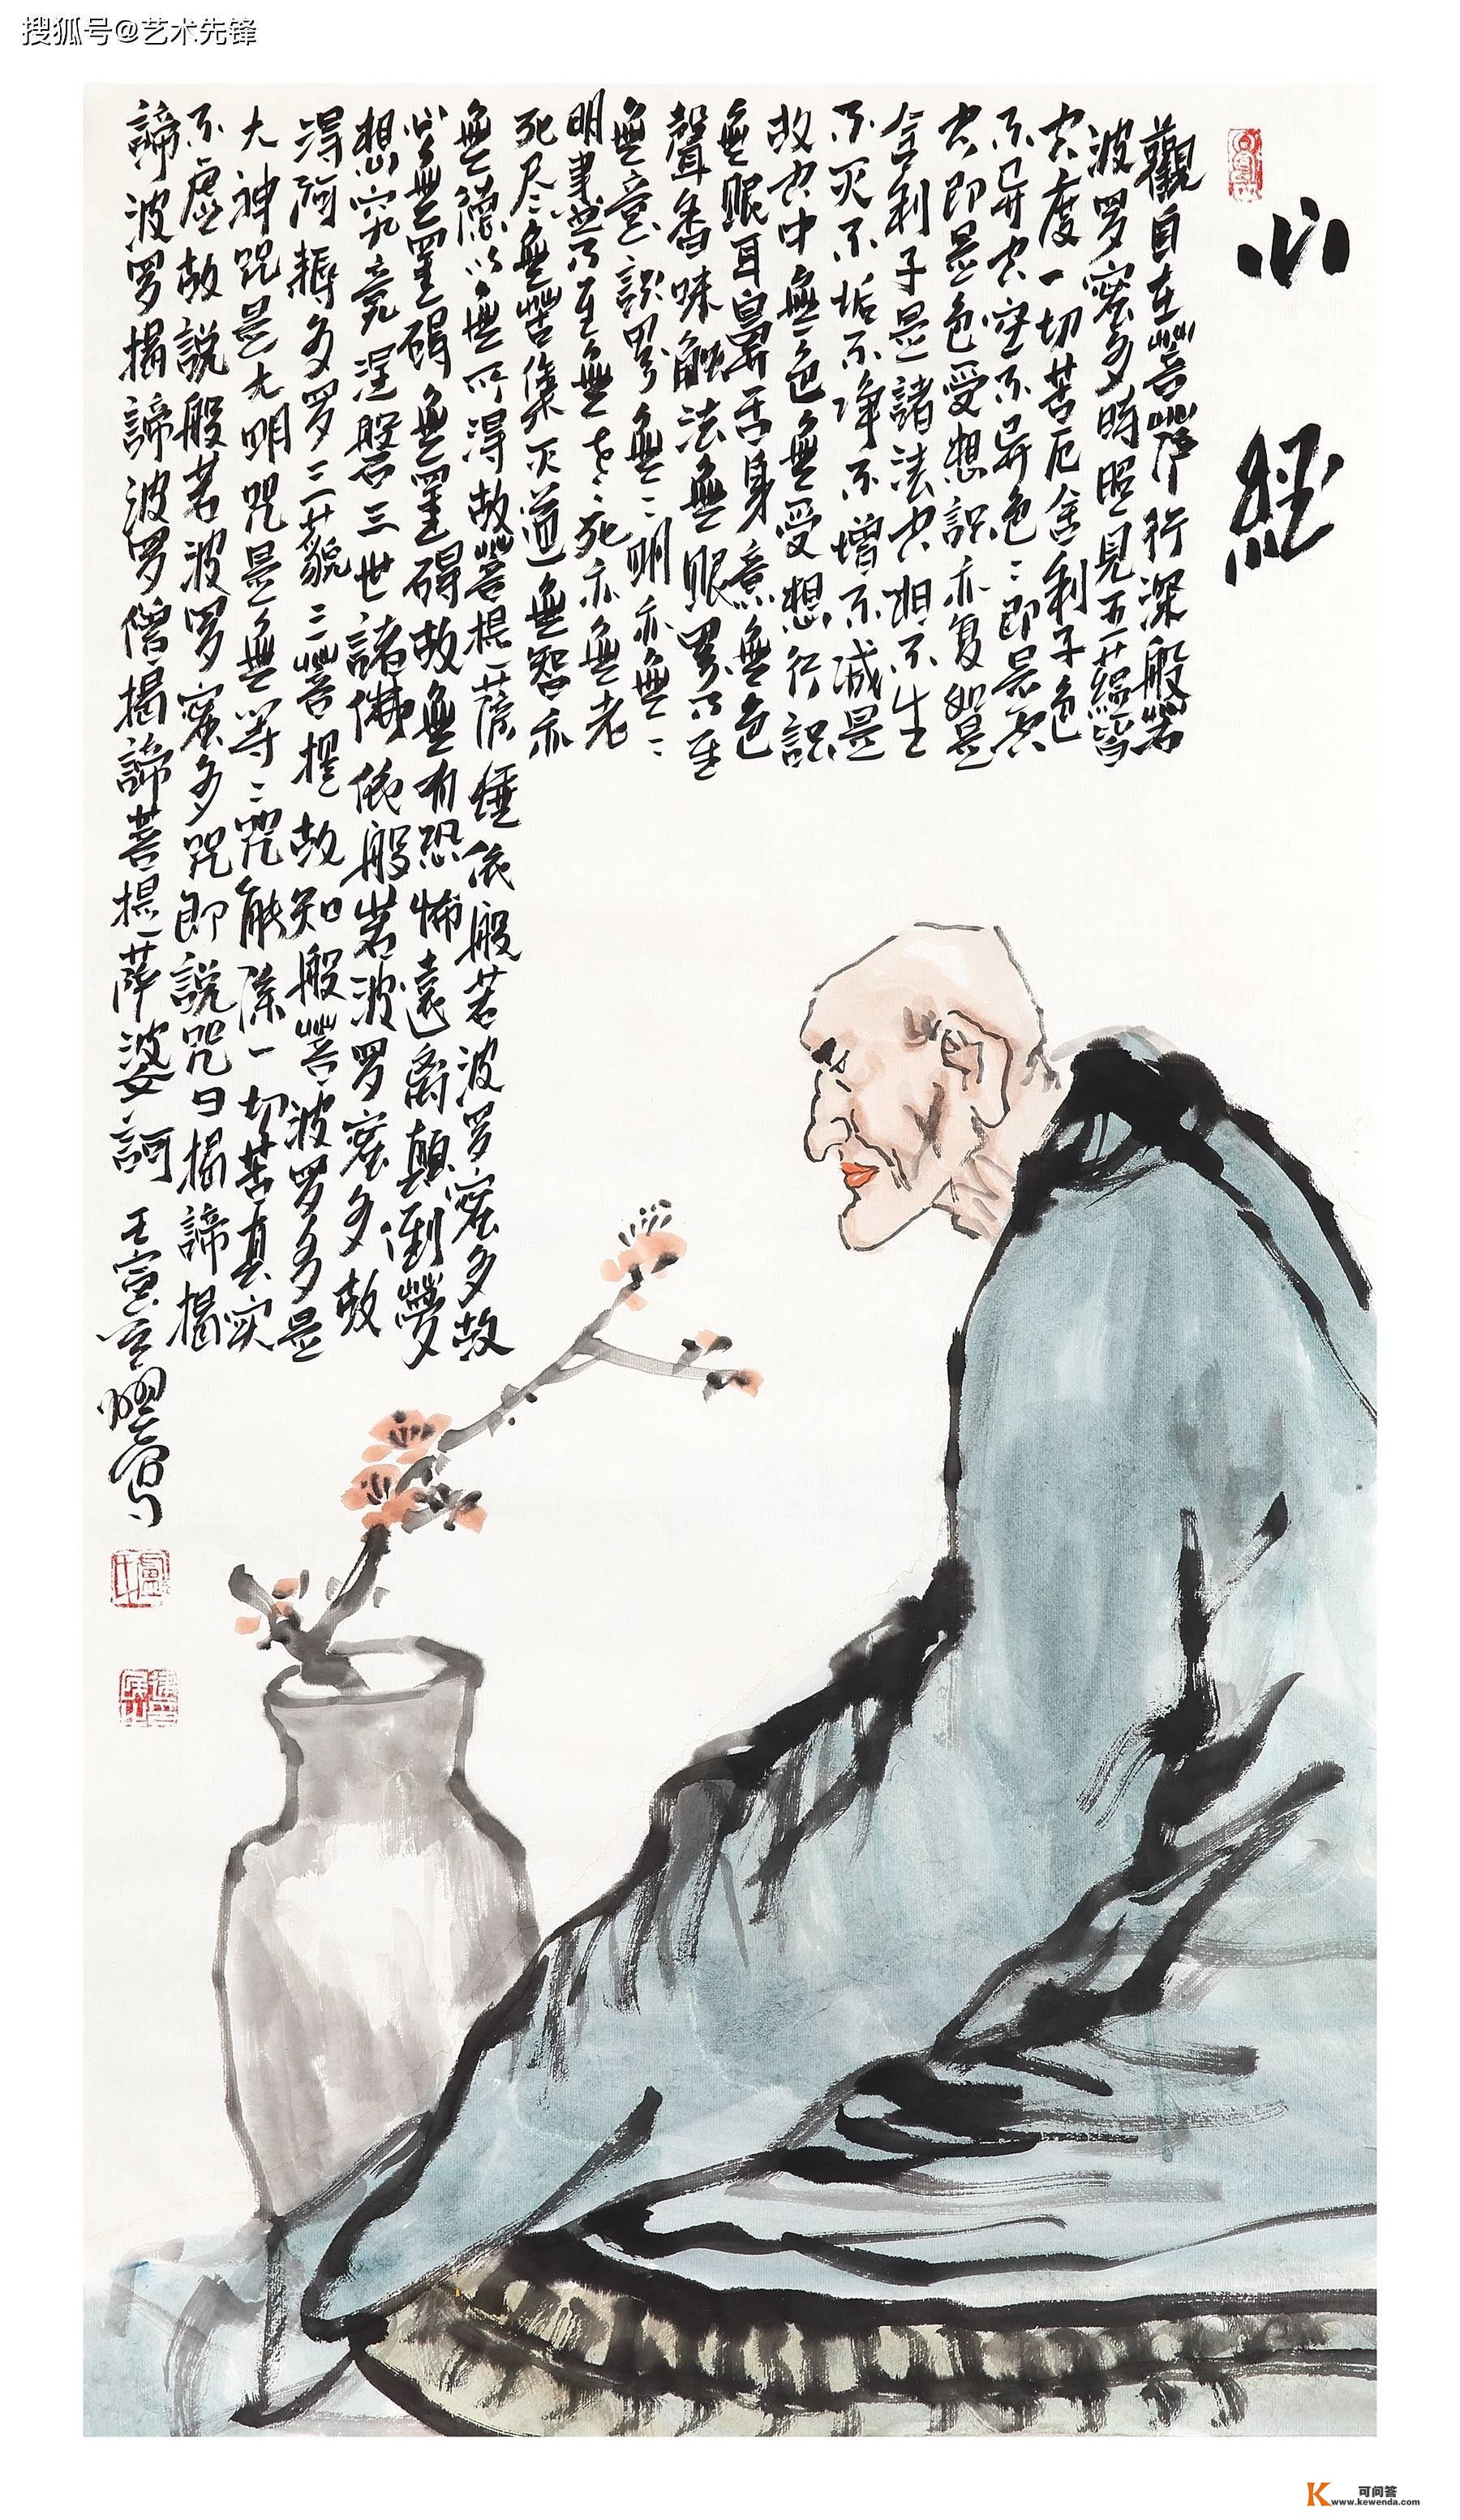 搜狐号@艺术先锋
心經
觀自在菩薩行深般若
波罗蜜多時照見五蘊皆
空度一切苦厄舍利子色
不异空空不异色〻即是空
空即是色受想識亦复如是
舍利子是諸法空相不生
不灭不垢不净不增不减是
故空中無色無受想行識
無眼耳鼻舌身意無色
聲香味触法無眼界乃至
無意識界無〻明亦無〻
明尽乃至無老〻死亦無老
死尽無苦集灭道無智亦
無德以無所得故菩提薩埵依般若波罗蜜多故
心無罣碍無罣碍故無有恐怖遠离顛倒夢
想究竟涅般三世諸佛依般若波罗蜜多故
得阿耨多罗三藐三菩提故知般若波罗多是
大神咒是大明咒是無等〻咒能除一切苦真实
不虚故説般若波罗蜜多咒即説咒曰揭諦揭
諦波罗揭諦波罗僧揭諦菩提薩婆訶
可问答
www.kewenda.com